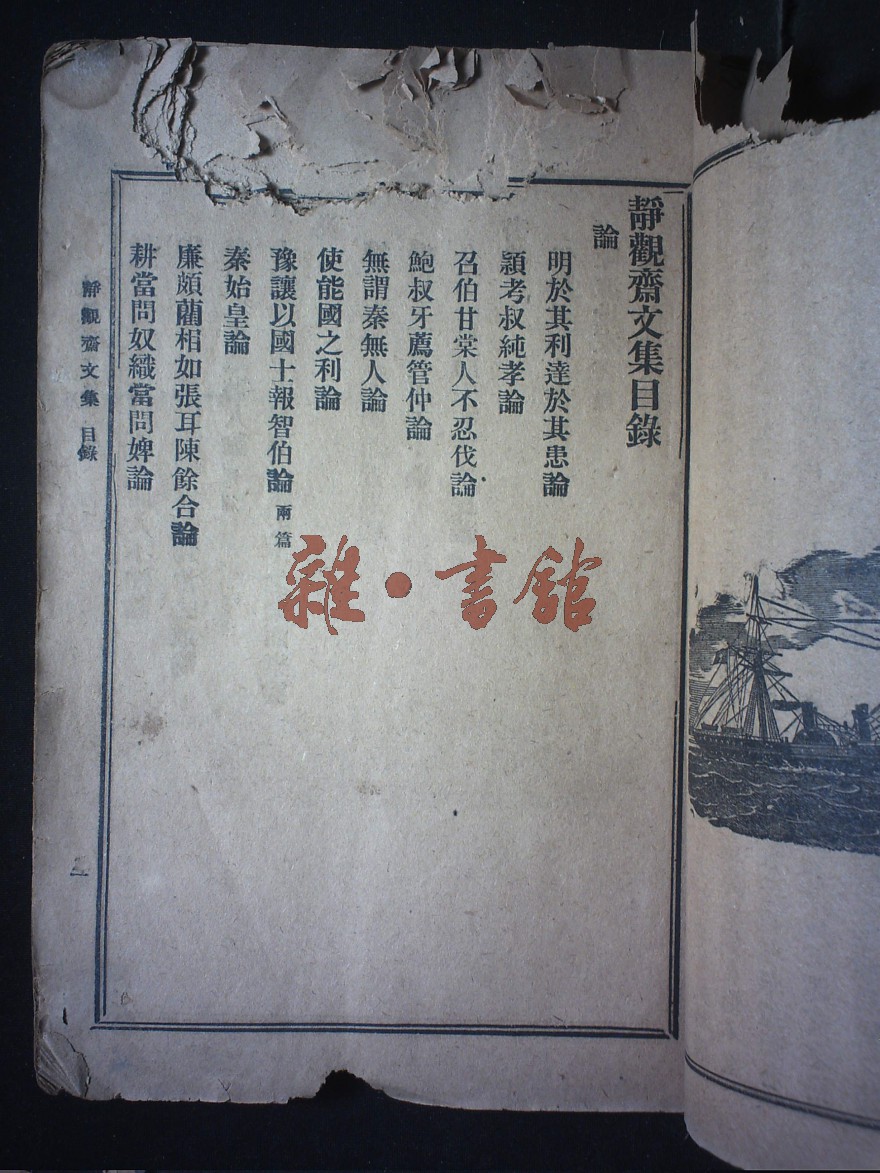 靜觀齋文集目錄
論
明於其利達於其患論
潁考叔純孝論
召伯甘棠人不忍伐論
鮑叔牙薦管仲論
無謂秦無人論
使能國之利論
豫讓以國士報智伯論 兩篇
秦始皇論
廉頗藺相如張耳陳餘合論
耕當問奴織當問婢論
靜觀齋文集 目錄
一
雜·書館